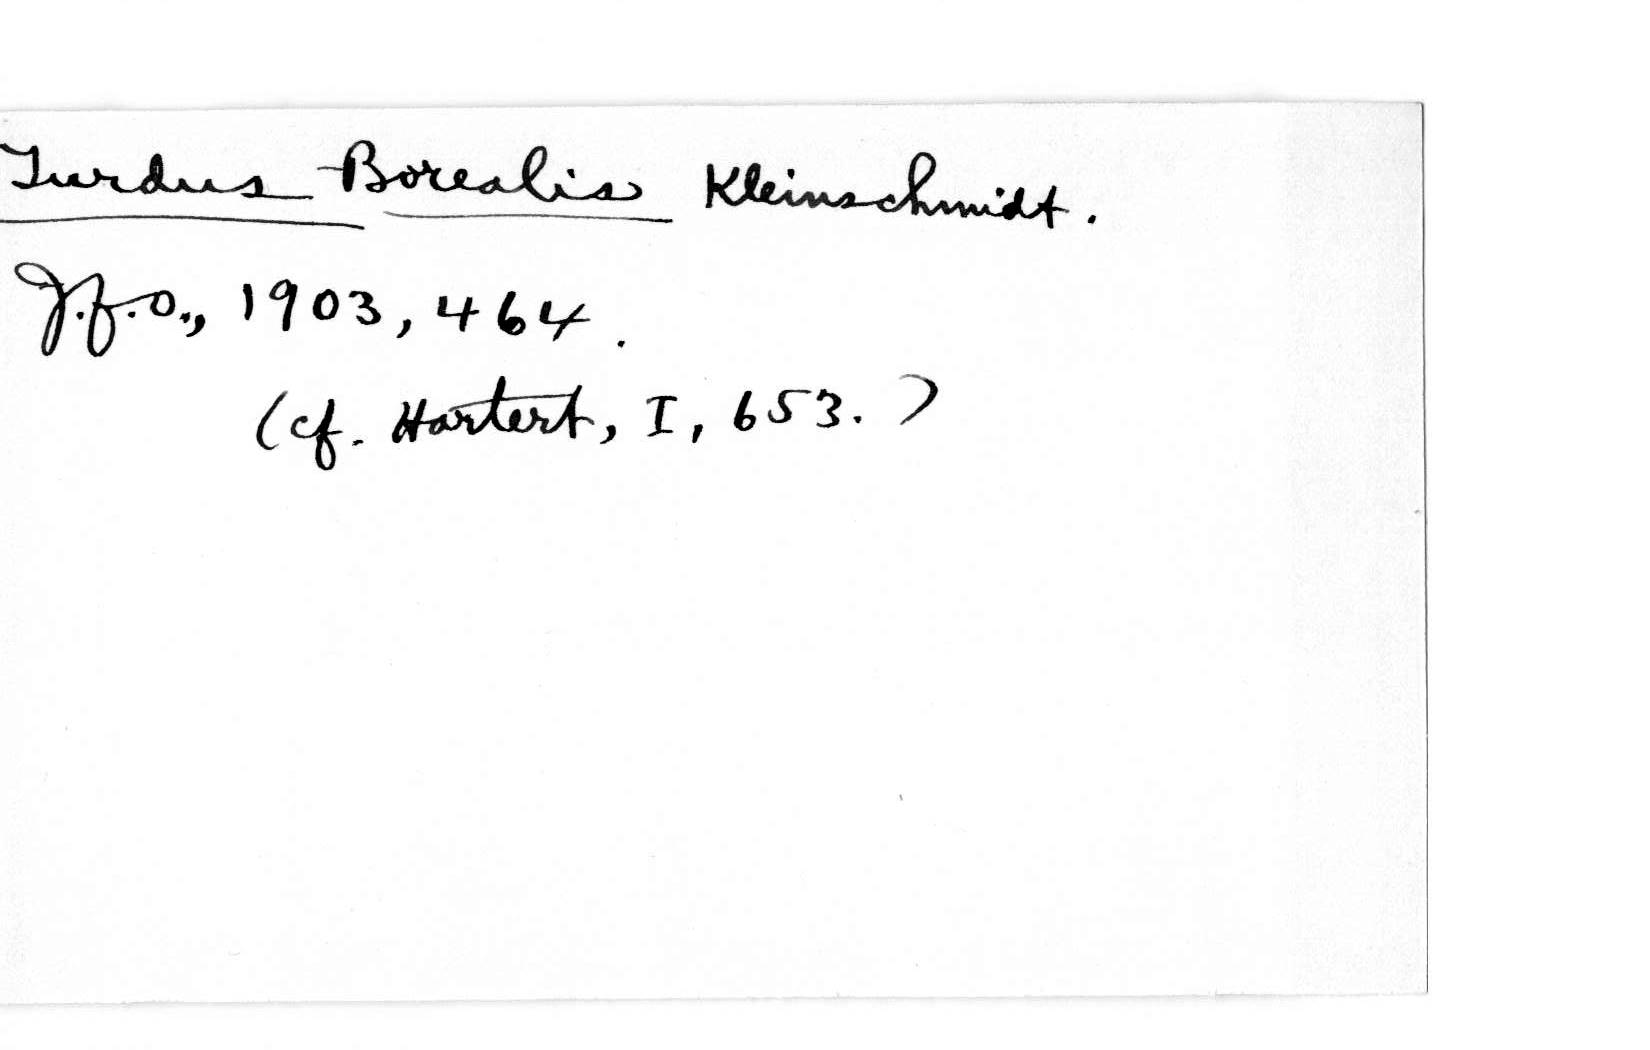 Turdus Borealis Kleinschmidt.
J.f.O., 1903, 464.
(cf. Hartert, I, 653.)